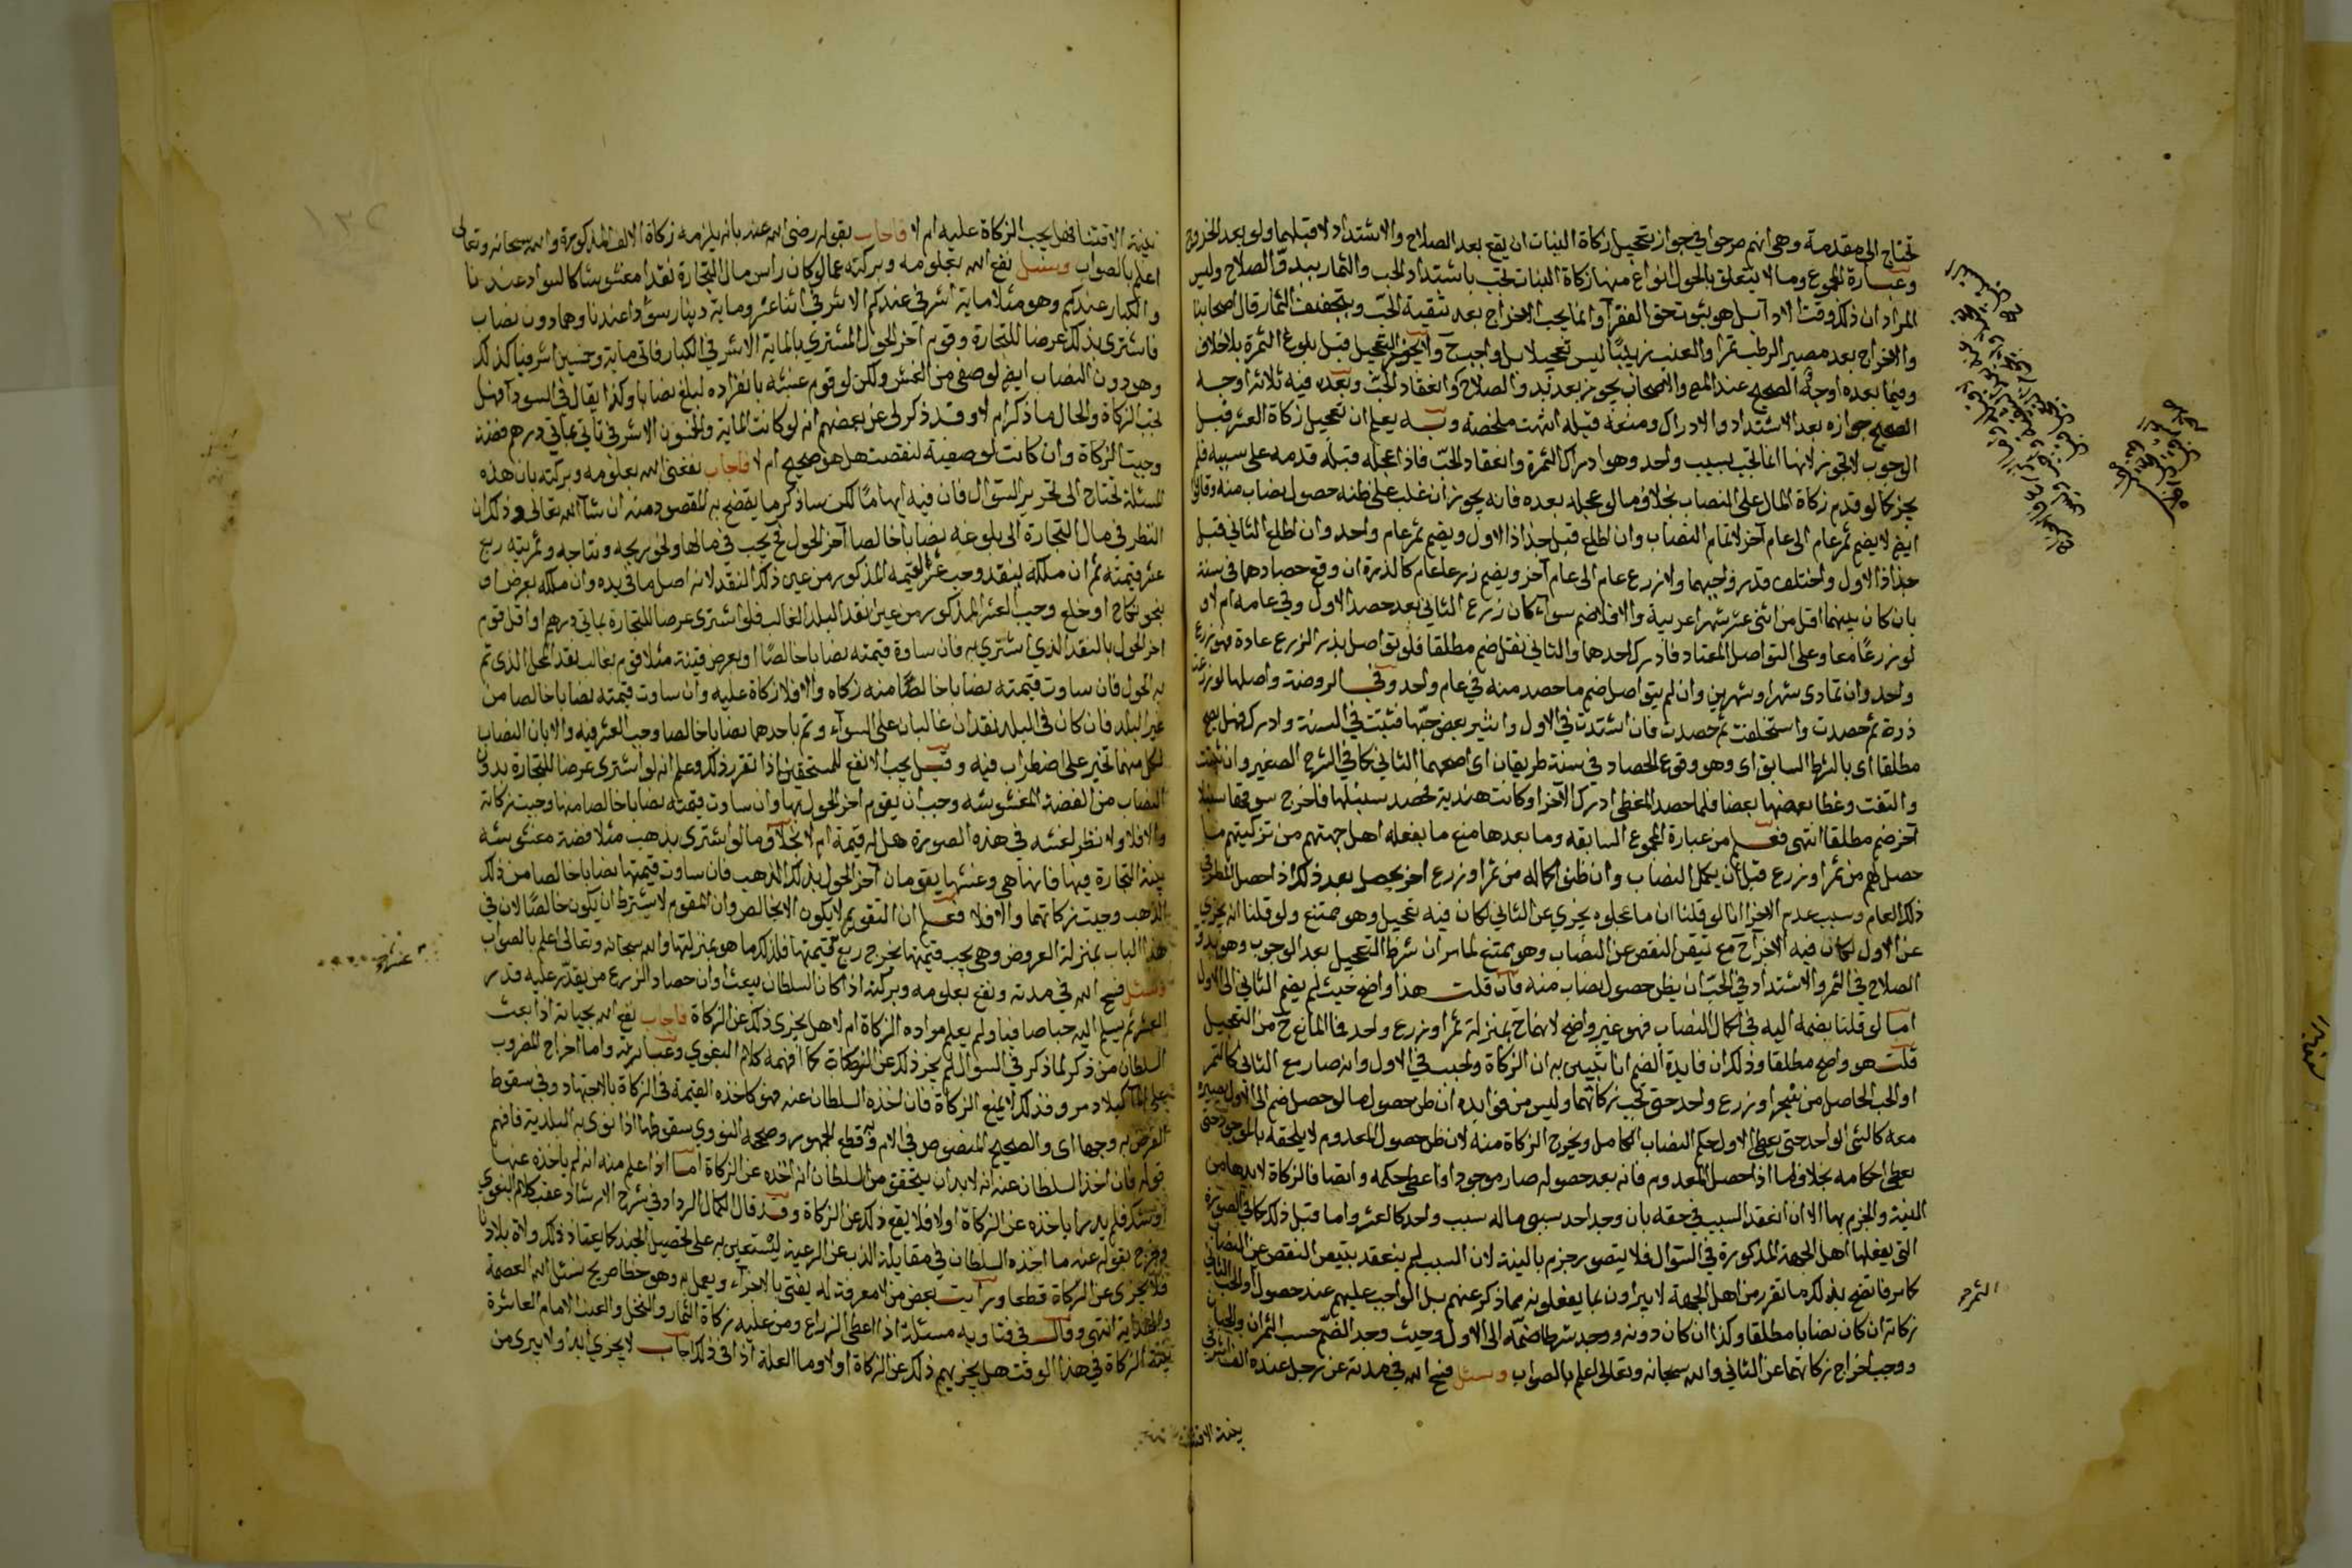 تحتاج الى مقدمة وهي انهم صرحوا في جواز تعجيل زكاة النبات ان يقع بعد الصلاح والاشتداد لا قبلهما ولو بعد الخروج
وعبارة المجموع وما لا يتعلق بالحول انواع منها زكاة النبات تجب باشتداد الحب والثمار ببدو الصلاح وليس
المراد ان ذلك وقت الاداء بل هو ثبوت حق الفقرا وانما يجب الاخراج بعد تنقية الحب وبتجفيف الثمار قال اصحابنا
والاخراج بعد مصير الرطب تمرا والعنب زبيبا ليس تعجيلا بل واجب ح ولا يجوز التعجيل قبل بلوغ الثمرة بلا خلاف
وفيما بعده اوجه الصحيح عند المص والاصحاب يجوز بعد بدو الصلاح وانعقاد الحب وبعده فيه ثلاثة اوجه
الصحيح جوازه بعد الاشتداد والادراك ومنعه قبله انتهت ملخصة وبه يعلم ان تعجيل زكاة العشر قبل
الوجوب لا تجوز لانها انما تجب بسبب واحد وهو ادراك الثمرة وانعقاد الحب فاذا عجله قبله قدمه على سببه فلم
يجز كما لو قدم زكاة المال على النصاب بخلاف ما لو عجله بعده فانه يجوز ان غلب على ظنه حصول نصاب منه وقالوا
ايضا لا يضم ثمر عام الى عام آخر لاتمام النصاب وان اطلع قبل جذاذ الاول ويضم ثمر عام واحد وان اطلع الثاني قبل
جذاذ الاول واختلف قدر واجبهما ولا زرع عام الى عام آخر ويضم زرعا عام كالذرة ان وقع حصادهما في سنة
بان كان بينهما اقل من اثني عشر شهرا عربية والا فلا ضم سواء كان زرع الثاني بعد حصد الاول وفي عامه ام لا و
لو زرعا معا وعلى التواصل المعتاد فادرك احدهما والثاني بقل ضم مطلقا فلو تواصل بذر الزرع عادة فهو زرع
واحد وان تمادى شهرا وشهرين وان لم يتواصل ضم ما حصد منه في عام واحد وفي الروضة واصلها لو زرعت
ذرة ثم حصدت واستخلفت ثم حصدت فان اشتدت في الاول وانتثر بعض حبها فنبتت في السنة وادرك فهل يضم
مطلقا اى بالشرط السابق اى وهو وقوع الحصاد في سنة طريقان اى اصحهما الثاني كما في الشرح الصغير وان نبتت
والتفت وغطا بعضها بعضا فلما حصد المغطى ادرك الآخر او كانت هندية فحصد سنبلها فاخرج سوقها سنبلا
آخر ضم مطلقا انتهى فعلم من عبارة المجموع السابقه وما بعدها منع ما يفعله اهل جهتهم من تزكيتهم ما
حصل لهم من ثمر او زرع قبل ان يكمل النصاب وان ظن اكماله من ثمر او زرع اخر يحصل بعد ذلك اذا حصل المطر في
ذلك العام وسبب عدم الاجزا انا لو قلنا ان ما عجلوه يجزي عن الثاني لكان فيه تعجيل وهو ممتنع ولو قلنا انه يجزي
عن الاول لكان فيه الاخراج مع تيقن النقص عن النصاب وهو ممتنع لما مر ان شرط التعجيل بعد الوجوب وهو بدو
الصلاح في الثمر والاشتداد في الحب ان يظن حصول نصاب منه فان قلت هذا واضح حيث لم يضم الثاني الى الاول
اما لو قلنا بضمه اليه في اكمال النصاب فهو غير واضح لانهما ح بمنزلة ثمر او زرع واحد فما المانع ح من التعجيل
قلت هو واضح مطلقا وذلك ان فايدة الضم انا نتبين به ان الزكاة وجبت في الاول وانه صار مع الثاني كالثمر
او الحب الحاصل من شجر او زرع واحد حتى تجب زكاتهما وليس من فوايده ان ظن حصول ما لو حصل ضم الى الاول يصيره
معه كالشئ الواحد حتى يعطى الاول حكم النصاب الكامل ويخرج الزكاة منه لان ظن حصول المعدوم لا يلحقه بالموجود حتى
يعطى احكامه بخلاف ما اذا حصل المعدوم فانه بعد حصوله صار موجودا فاعطى حكمه وايضا فالزكاة لابد لها من
النية والجزم بها الا ان انعقد السبب في حقه بان وجد احد سببي ماله سبب واحد كالعشر واما قبل ذلك كما في الصورة
التي يفعلها اهل الجهة المذكورة في السؤال فلا يتصور جزم بالنية لان السبب لم ينعقد بتيقن النقص عن النصاب
كما مر فاتضح بذلك ما تقرر من اهل الجهة لا يبراون بما يفعلونه مما ذكر عنهم بل الواجب عليهم عند حصول الحب الثاني
زكاته ان كان نصابا مطلقا وكذا ان كان دونه ووجد شرط ضمه الى الاول وحيث وجد الضم حسب الثمران والحبان
ووجب اخراج زكاتهما عن الثاني والله سبحانه وتعالى اعلم بالصواب وسئل فسح الله في مدته عن رجل عنده الف اشرفي
الثمر صح
بنية الاقتنا
بنية الاقتنا فهل يجب الزكاة عليه ام لا فاجاب بقوله رضى الله عنه بانه يلزمه زكاة الالف المذكورة والله سبحانه وتعالى
اعلم بالصواب وسئل نفع الله بعلومه وبركته عما لو كان راس مال التجارة نقدا مغشوشا كالسواد عندنا
والكبار عندكم وهو مثلا ماية اشرفي عندكم الاشرفي اثنا عشر وماية دينار سودا عندنا وهما دون نصاب
فاشترى بذلك عرضا للتجارة وقوم آخر الحول المشتري بالماية الاشرفي الكبار فاتى ماية وخمسين اشرفيا كذلك
وهو دون النصاب ايضا لو صفى من الغش ولكن لو قوم غشه بانفراده لبلغ نصابا وكذا يقال في السودا فهل
تجب الزكاة والحال ما ذكر ام لا وقد ذكر لى عن بعضهم انه لو كانت الماية والخمسون الاشرفي تاتي بماتي درهم فضة
وجبت الزكاة وان كانت لو صفيت لنقصت هل هو صحيح ام لا فاجاب نفعنى الله بعلومه وبركته بان هذه
المسئلة تحتاج الى تحرير السؤال فان فيه ايهاما لكن ساذكر ما يتضح به المقصود منه ان شآ الله تعالى وذلك ان
النظر في مال التجارة الى بلوغه نصابا خالصا آخر الحول فح يجب في مالها ولو نحو ربحه ونتاجه وثمرته ربع
عشر قيمته ثم ان ملكه بنقد وجب عشر القيمه المذكور من عين ذلك النقد لانه اصل ما في يده وان ملكه بعرض او
بنحو نكاح او خلع وجب العشر المذكور من عين نقد البلد الغالب فلو اشترى عرضا للتجارة بماتي درهم او اقل قوم
اخر الحول بالنقد الذي اشتري به فان ساوت قيمته نصابا خالصا او بعرض قنية مثلا قوم بغالب نقد المحل الذى تم
به الحول فان ساوت قيمته نصابا خالصا منه زكاه والا فلا زكاة عليه وان ساوت قيمته نصابا خالصا من
غير البلد فان كان في البلد نقدان غالبان على السوآء وتم باحدهما نصابا خالصا وجب العشر فيه والا بان النصاب
لكل منهما تخير على اضطراب فيه وقيل يجب الانفع للمستحقين اذا تقرر ذلك وعلم انه لو اشترى عرضا للتجارة بدون
النصاب من الفضة المغشوشه وجب ان يقوم اخر الحول بها وان ساوت قيمته نصابا خالصا منها وجبت زكاته
والا فلا ولا نظر لغشه في هذه الصورة هل له قيمة ام لا بخلاف ما لو اشترى بذهب مثلا فضة مغشوشه
بنية التجارة فيها فانها هي وغشها يقومان آخر الحول بذلك الذهب فان ساوت قيمتها نصابا خالصا من ذلك
الذهب وجبت زكاتهما والا فلا فعلم ان التقويم لا يكون الا بخالص وان المقوم لا يشترط ان يكون خالصا لان في
هذا الباب بمنزلة العروض وهي يجب قيمتها يخرج ربع قيمتها فلذلك ما هو بمنزلتها والله سبحانه وتعالى اعلم بالصواب
وسئل فسح الله في مدته ونفع بعلومه وبركته اذا كان السلطان يبعث اوان حصاد الزرع من يقدر عليه قدر
العشر ثم يسلم اليه حبا صافيا ولم يعلم مراده الزكاة ام لا هل يجزى ذلك عن الزكاة فاجاب نفع الله بحياته اذا بعث
السلطان من ذكر لما ذكر في السؤال لم يجز ذلك عن الزكاة كما افهمه كلام البغوي وعبارته واما اخراج المضروب
القرض به وجها اى والصحيح المنصوص في الام وبه قطع الجمهور وصححه النووي سقوطها اذا نوى به البلدية فافهم
قوله فان اخذ السلطان عنه انه لابد ان يتحقق من السلطان انه اخذه عن الزكاة اما اذا علم منه انه لم ياخذه عنها
او شك فلم يدر اياخذه عن الزكاة او لا فلا يقع ذلك عن الزكاة وقد قال الكمال الرداد في شرح الارشاد عقب كلام البغوي
وخرج بقوله عنه ما اخذه السلطان في مقابلة الذب عن الرعية ليستعين به على تحصيل الجند كما يعتاد ذلك ولاة بلادنا
فلا يجزى عن الزكاة قطعا ورايت بعض من لا معرفة له يفتى بالاجزاء ويعمل به وهو خطا صريح نسئل الله العصمة
والهداية انتهى وقال في فتاويه مسئلة اذا اعطى الزراع ومن عليه زكاة الثمار والنخل والعنب الامام العاشرة
بنية الزكاة في هذا الوقت هل يجزيهم ذلك عن الزكاة او لا وما العلة اذا في ذلك اجاب لا يجزي ابدا ولا يبرى من